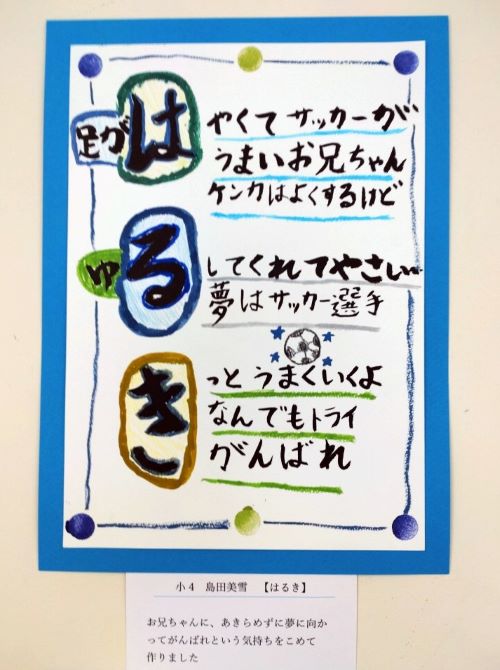 足がはやくてサッカーが
うまいお兄ちゃん
ケンカはよくするけど
ゆるしてくれてやさしい
夢はサッカー選手
きっとうまくいくよ
なんでもトライ
がんばれ
小4 島田美雪 【はるき】
お兄ちゃんに、あきらめずに夢に向か
ってがんばれという気持ちをこめて
作りました